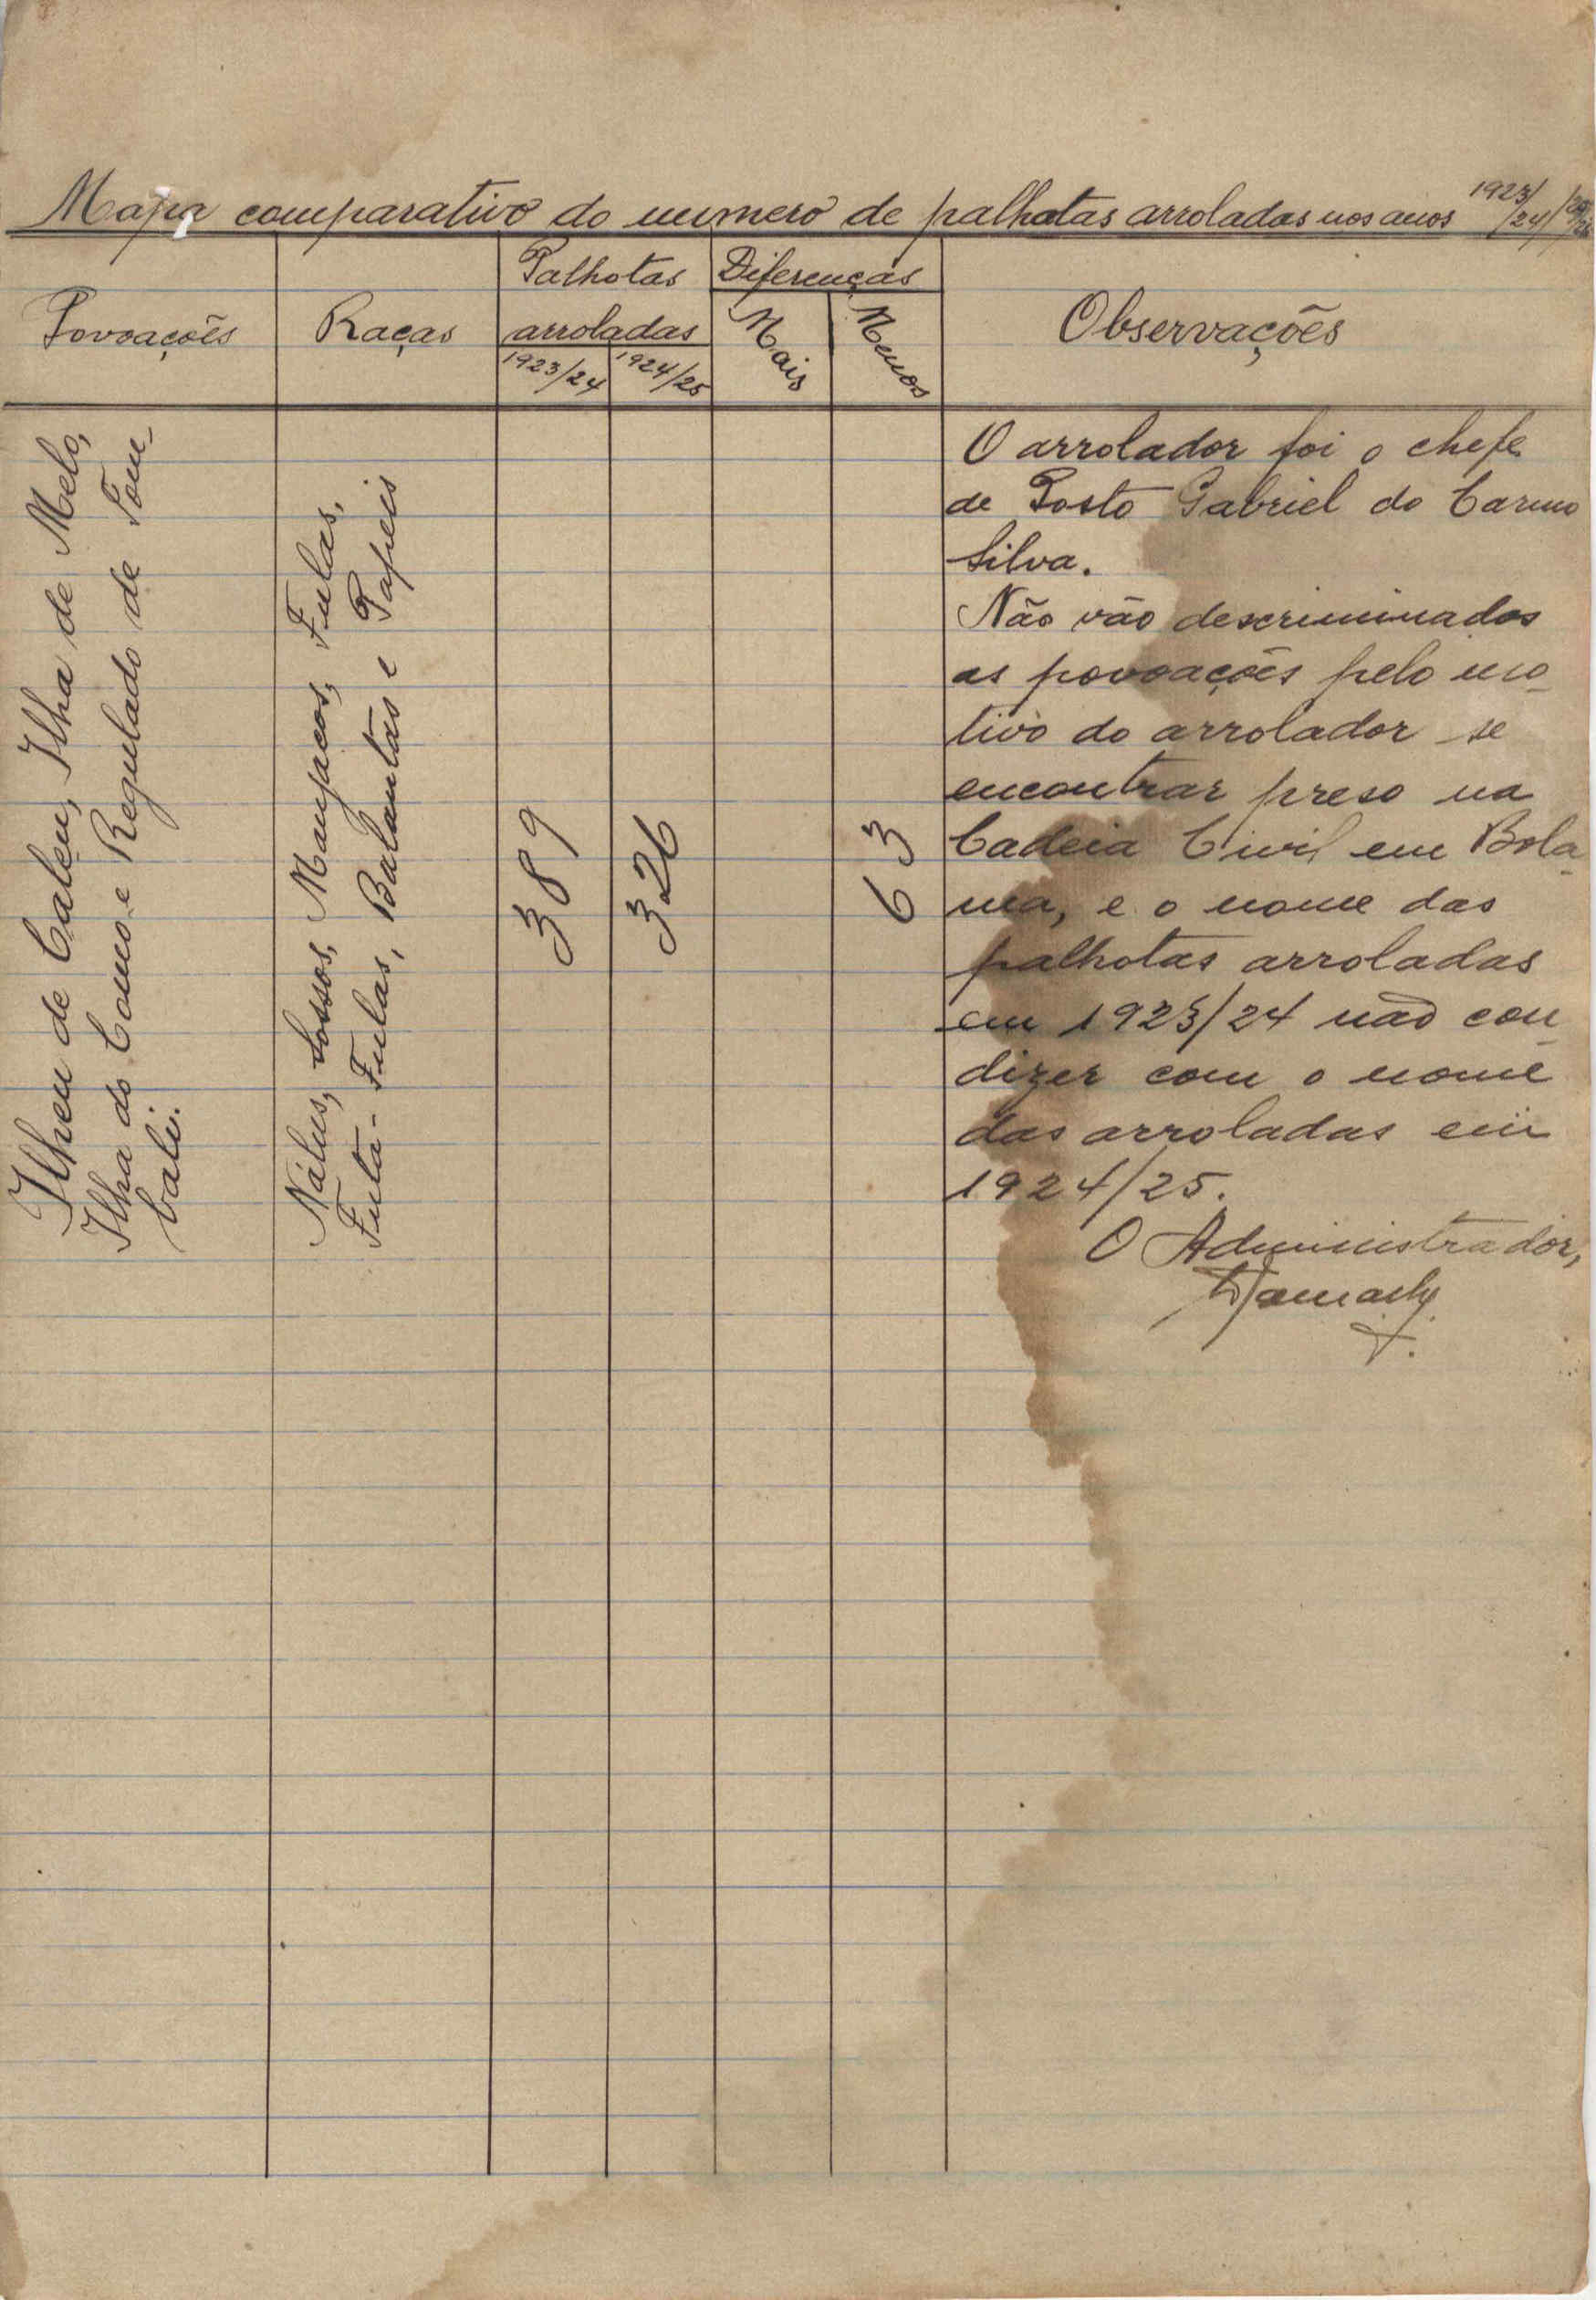 Mapa comparativo do numero de palhotas arroladas nos anos 1923/24/
Povoações
Raças
Palhotas
arroladas
1923/24
1924/25
Diferenças
Mais
Menos
Observações
Ilheu de Caleu, Ilha de Melo,
Ilha do Como e Regulado de Tom-
bali.
Nálus, Sossos, Manjacos, Fulas,
Futa-Fulas, Balantas e Papeis
389
326
63
O arrolador foi o chefe
de Posto Gabriel do Carmo
Silva.
Não vão descriminados
as povoações pelo mo-
tivo do arrolador se
encontrar preso na
Cadeia Civil em Bola-
ma, e o nome das
palhotas arroladas
em 1923/24 não con-
dizer com o nome
das arroladas em
1924/25.
O Administrador,